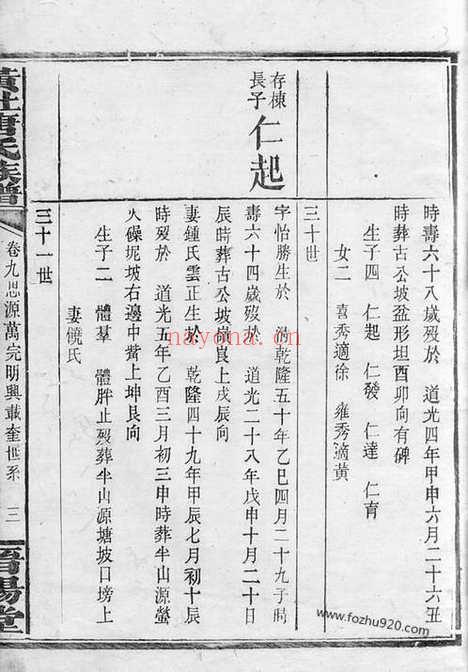 時壽六十八歲歿於 道光四年甲申六月二十六丑
時葬古公坡盆形坦酉卯向有碑
生子四 仁起 仁發 仁達 仁育
女二 喜秀適徐 雍秀適黃
三十世
存棟長子 仁起
字怡勝生於 清乾隆五十年乙巳四月二十九子時
壽六十四歲歿於 道光二十八年戊申十月二十日
辰時葬古公坡嶺良上戌辰向
妻鍾氏雲正生於 乾隆四十九年甲辰七月初十辰
時歿於 道光五年乙酉三月初三申時葬半山源螢
火 坭坡右邊中 上坤艮向
生子二 體羣 體胖止歿葬半山源塘坡口塝上
妻饒氏
三十一世
黃杜唐氏族譜
卷九思源萬完明興載奎世系 三
晉陽堂
www.fozhu920.com
namysg.com